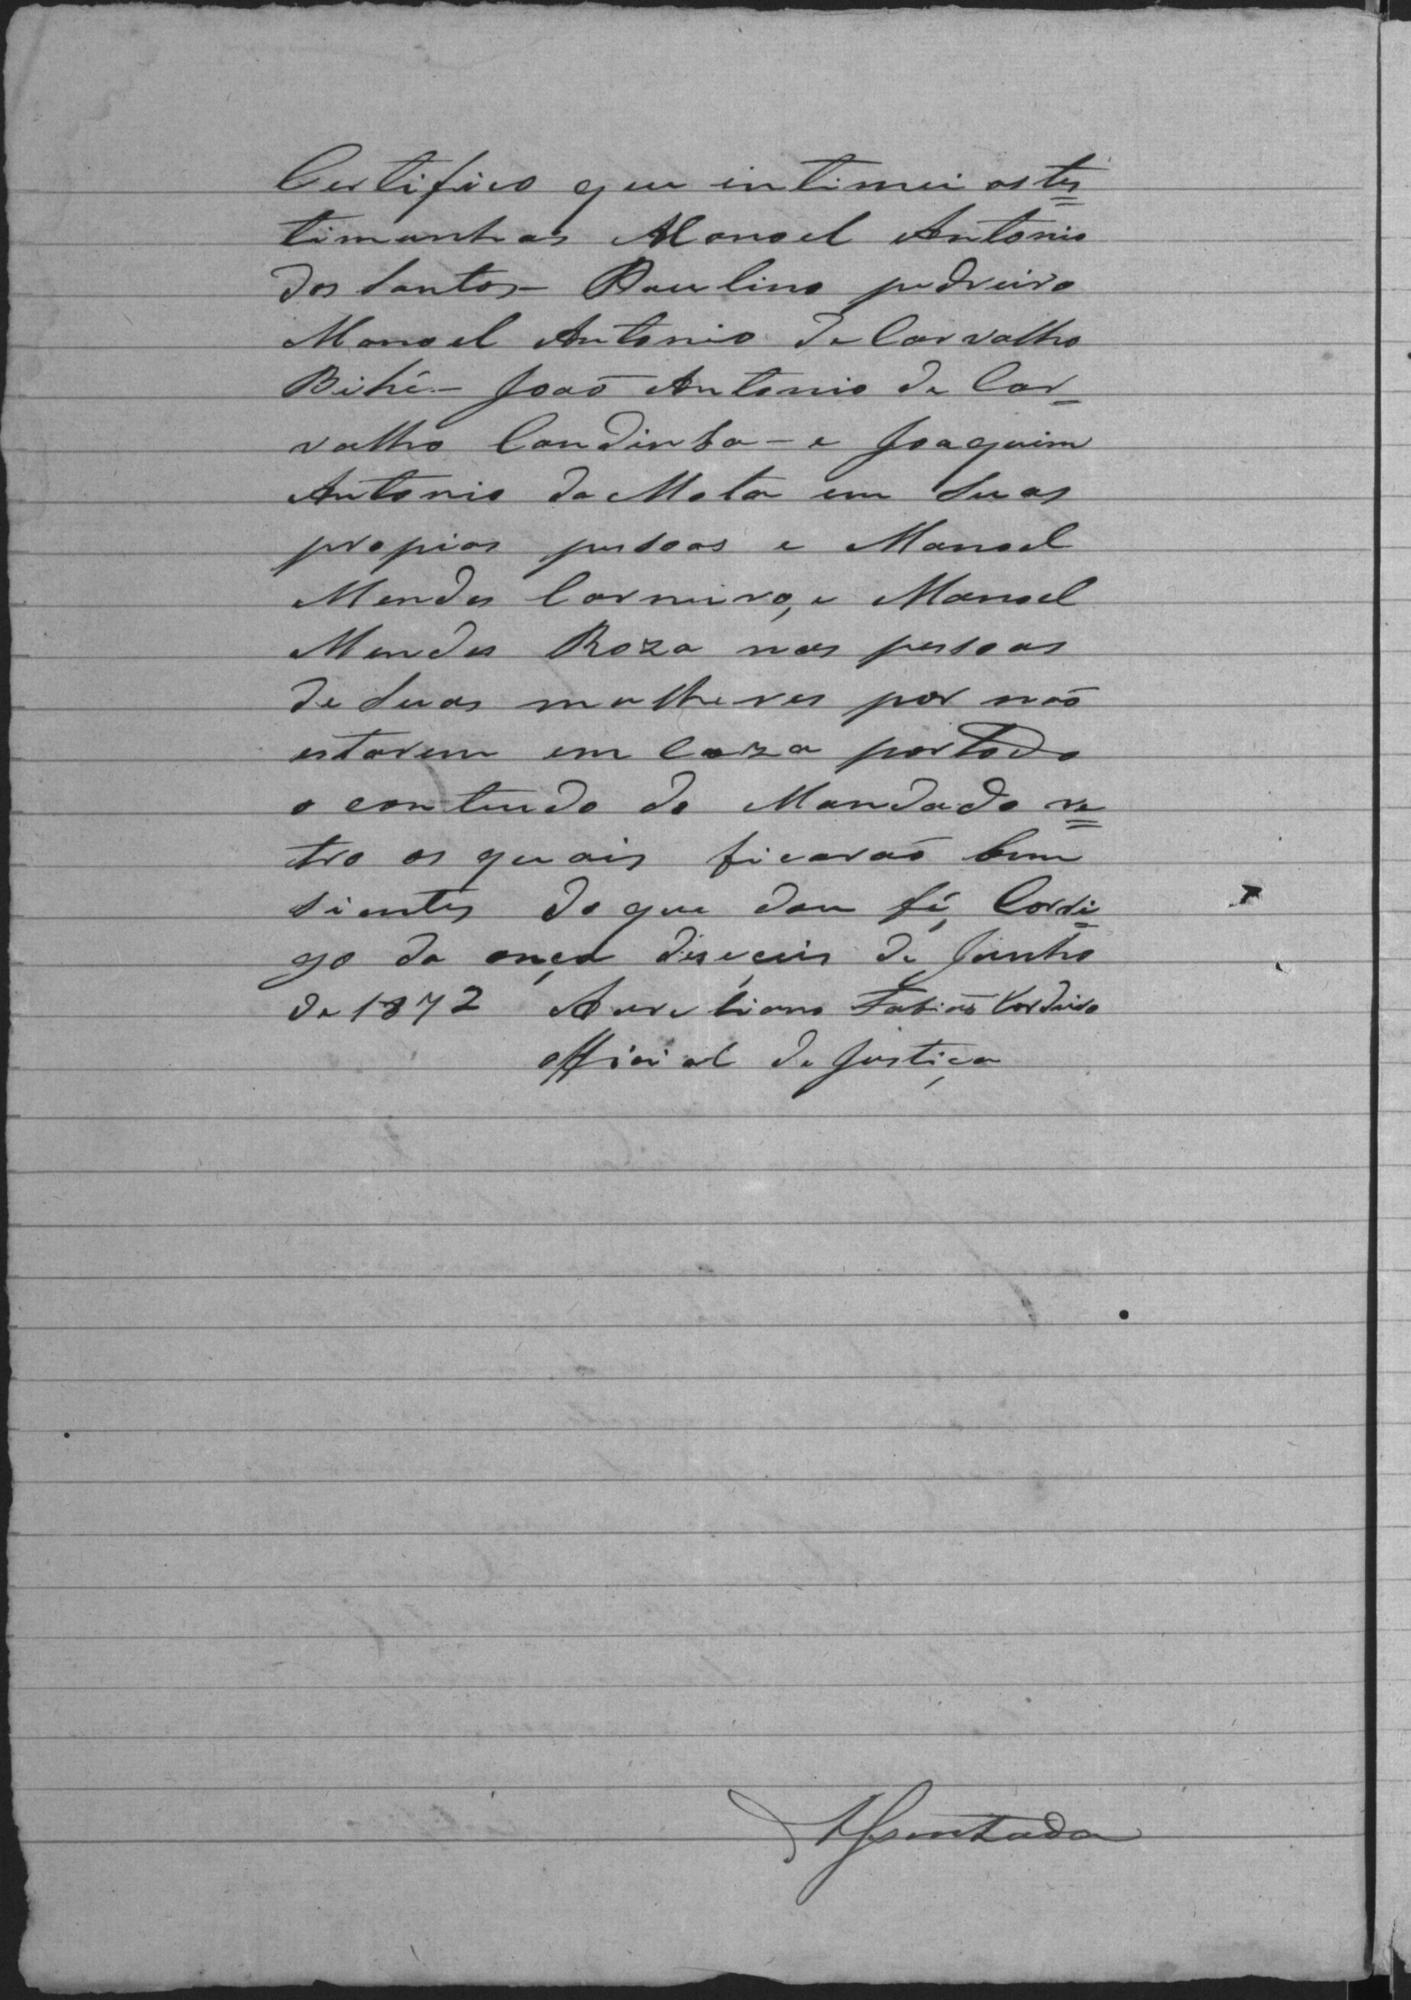 Certifico que intimei as tes=
timunhas Manoel Antonio
dos Santos – Paulino pedreiro
Manoel Antonio de Carvalho
Bihé – João Antonio de Car-
valho Candinho – e Joaquim
Antonio da Mota em suas
propias pessoas e Manoel
Mendes Carneiro, e Manoel
Mendes Roza nas pessoas
de suas molheres por não
estarem em Caza por todo
o conteudo do Mandado re=
tro os quais ficarão bem
sientes do que dou fé, Corri-
go da onça deseceis de Junho
de 1872 Aureliano Fabião Cordeiro
official de Justiça
Assentada